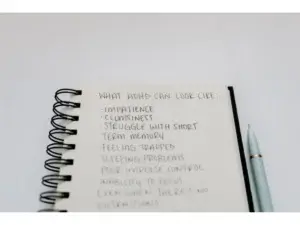 WHAT ADHD CAN LOOK LIKE
·IMPATIENCE
·CLUMSINESS
STRUGGLE WITH SHORT
TERM MEMORY
FEELING TRAPPED
SLEEPING PROBLEMS
POOR IMPULSE CONTROL
INABILITY TO FOCUS
EVEN WHEN THERE'S NO
DISTRACTIONS